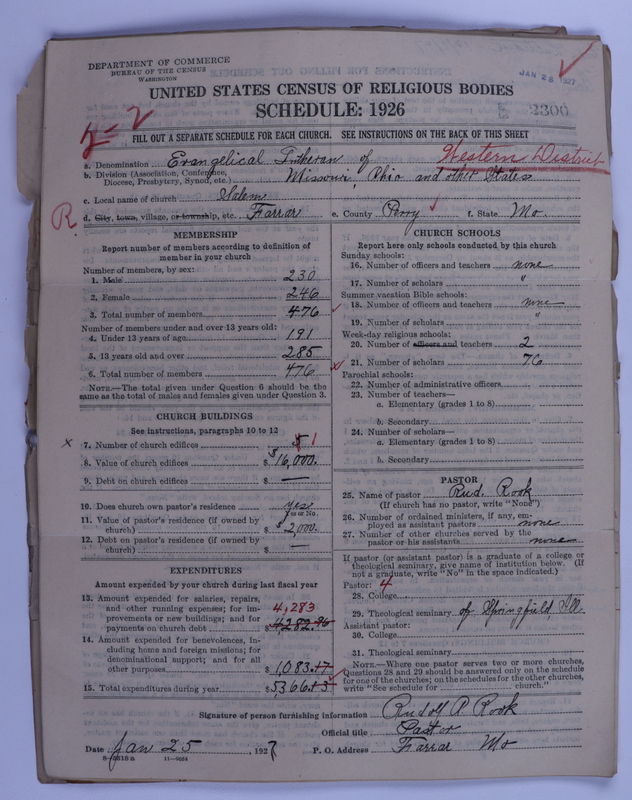 DEPARTMENT OF COMMERCE
BUREAU OF THE CENSUS
WASHINGTON
JAN 28 1927
UNITED STATES CENSUS OF RELIGIOUS BODIES
SCHEDULE: 1926
2300
FILL OUT A SEPARATE SCHEDULE FOR EACH CHURCH. SEE INSTRUCTIONS ON THE BACK OF THIS SHEET
a. Denomination Evangelical Lutheran of Western District
b. Division (Association, Conference, Diocese, Presbytery, Synod, etc.) Missouri, Ohio and other States
c. Local name of church Salem
R
d. City, town, village, or township, etc. Farrar e. County Perry f. State Mo.
MEMBERSHIP
Report number of members according to definition of
member in your church
Number of members, by sex:
1. Male 230
2. Female 246
3. Total number of members 476
Number of members under and over 13 years old:
4. Under 13 years of age 191
5. 13 years old and over 285
6. Total number of members 476
NOTE.—The total given under Question 6 should be the
same as the total of males and females given under Question 3.
CHURCH BUILDINGS
See instructions, paragraphs 10 to 12
x 7. Number of church edifices 1
8. Value of church edifices $16,000.
9. Debt on church edifices $ —
10. Does church own pastor's residence yes
Yes or No
11. Value of pastor's residence (if owned by
church) $2,000.
12. Debt on pastor's residence (if owned by
church) $ —
EXPENDITURES
Amount expended by your church during last fiscal year
13. Amount expended for salaries, repairs,
and other running expenses; for im-
provements or new buildings; and for
payments on church debt 4,283 $4,282.96
14. Amount expended for benevolences, in-
cluding home and foreign missions; for
denominational support; and for all
other purposes $1,083.17
15. Total expenditures during year $5366.13
CHURCH SCHOOLS
Report here only schools conducted by this church
Sunday schools:
16. Number of officers and teachers none
17. Number of scholars "
Summer vacation Bible schools:
18. Number of officers and teachers none
19. Number of scholars "
Week-day religious schools:
20. Number of officers and teachers 2
21. Number of scholars 76
Parochial schools:
22. Number of administrative officers
23. Number of teachers—
a. Elementary (grades 1 to 8)
b. Secondary
24. Number of scholars—
a. Elementary (grades 1 to 8)
b. Secondary
PASTOR
25. Name of pastor Rud. Rook
(If church has no pastor, write "None")
26. Number of ordained ministers, if any, em-
ployed as assistant pastors none
27. Number of other churches served by the
pastor or his assistants none
If pastor (or assistant pastor) is a graduate of a college or
theological seminary, give name of institution below. (If
not a graduate, write "No" in the space indicated.)
Pastor: 4
28. College
29. Theological seminary of Springfield, Ill.
Assistant pastor:
30. College
31. Theological seminary
NOTE.—Where one pastor serves two or more churches,
Questions 28 and 29 should be answered only on the schedule
for one of the churches; on the schedules for the other churches,
write "See schedule for church."
Signature of person furnishing information Rudolf A Rook
Official title Pastor
Date Jan 25 1927 P. O. Address Farrar Mo
11—9024